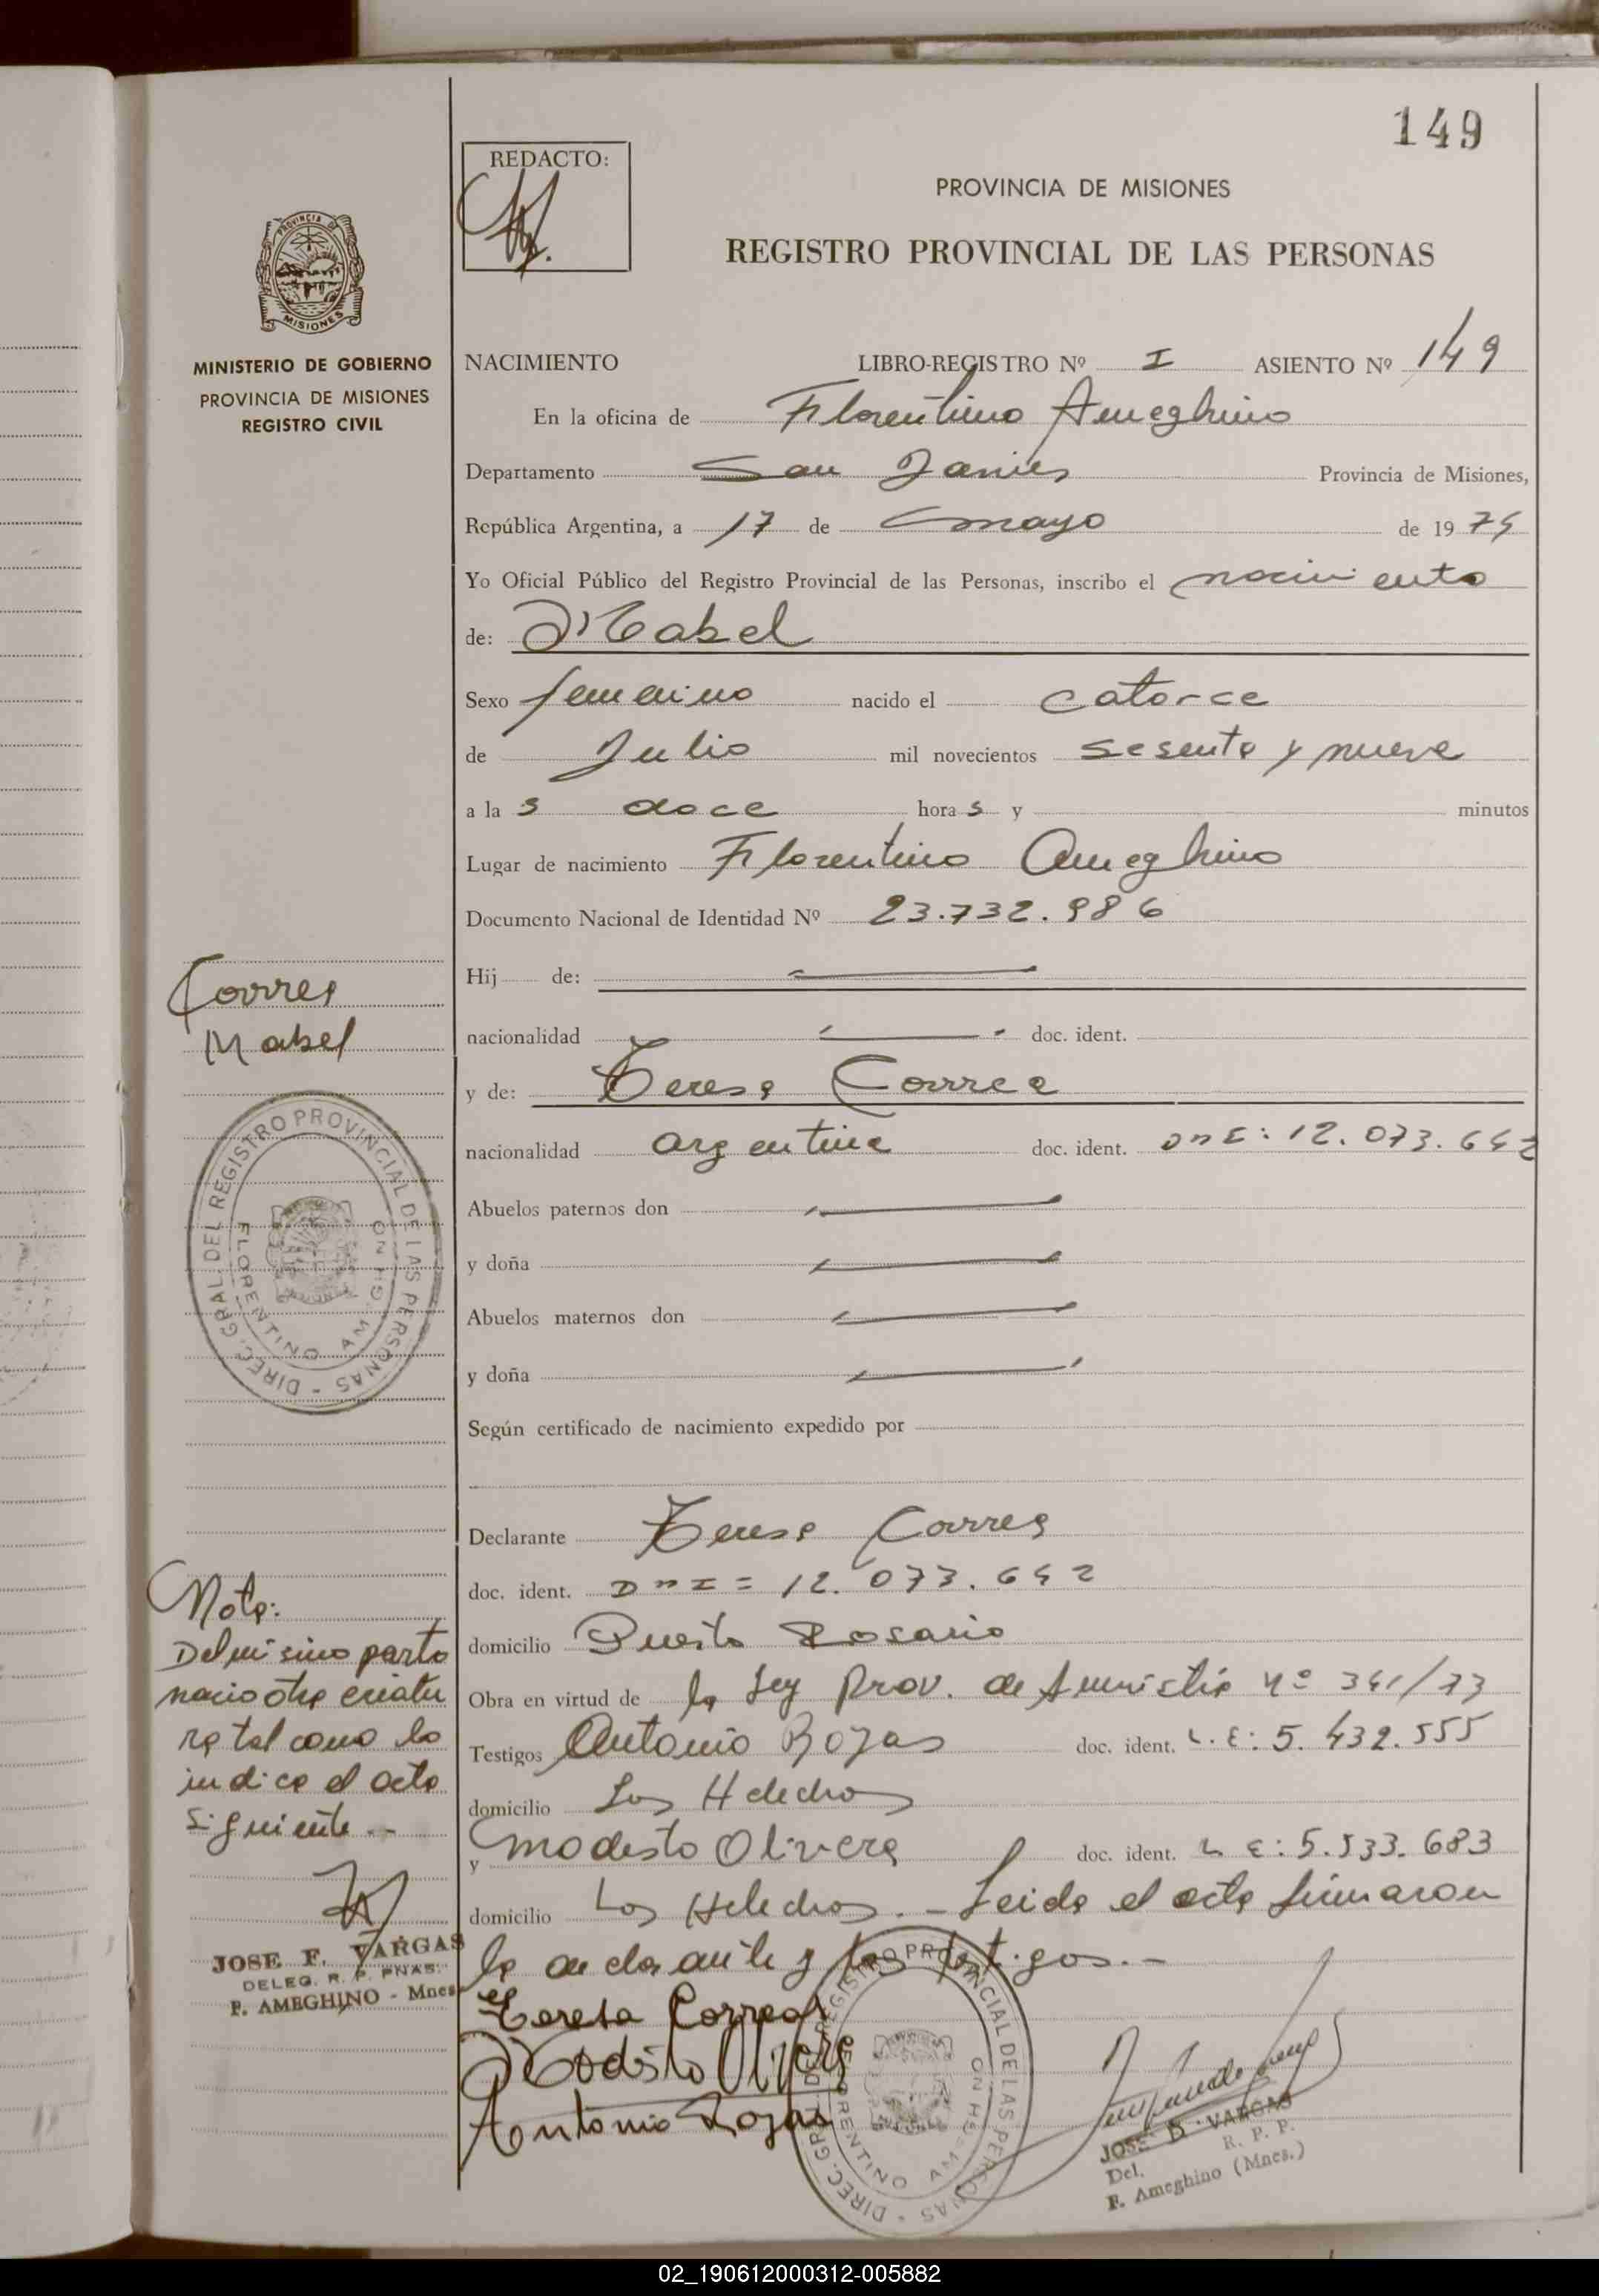 149
REDACTO:
PROVINCIA DE MISIONES
REGISTRO PROVINCIAL DE LAS PERSONAS
PROVINCIA DE
MISIONES
MINISTERIO DE GOBIERNO
PROVINCIA DE MISIONES
REGISTRO CIVIL
NACIMIENTO LIBRO-REGISTRO Nº I ASIENTO Nº 149
En la oficina de Florentino Ameghino
Departamento San Javier Provincia de Misiones,
República Argentina, a 17 de mayo de 19 74
Yo Oficial Público del Registro Provincial de las Personas, inscribo el nacimiento
de: Mabel
Sexo femenino nacido el catorce
de Julio mil novecientos sesenta y nueve
a la s doce hora s y minutos
Lugar de nacimiento Florentino Ameghino
Documento Nacional de Identidad Nº 23.732.986
Hij de:
nacionalidad doc. ident.
y de: Teresa Correa
nacionalidad argentina doc. ident. DNI: 12.073.642
Abuelos paternos don
y doña
Abuelos maternos don
y doña
Según certificado de nacimiento expedido por
Declarante Teresa Correa
doc. ident. DNI = 12.073.642
domicilio Puerto Rosario
Obra en virtud de la Ley Prov. de Amnistía Nº 341/73
Testigos Antonio Rojas doc. ident. L.E: 5.432.555
domicilio Los Helechos
y Modesto Olivera doc. ident. L E: 5.533.683
domicilio Los Helechos. - Leida el acta firmaron
la declarante y los testigos. -
Teresa Correa
Modesto Olivera
Antonio Rojas
Correa
Mabel
DIREC. GRAL. DEL REGISTRO PROVINCIAL DE LAS PERSONAS
FLORENTINO AMEGHINO
Nota:
Del mismo parto
nacio otra criatu
ra tal como lo
indica el acta
siguiente. -
JOSE F. VARGAS
DELEG. R. P. PNAS.
F. AMEGHINO - Mnes
DIREC. GRAL. DEL REGISTRO PROVINCIAL DE LAS PERSONAS
FLORENTINO AMEGHINO
JOSE F. VARGAS
Del. R. P. P.
F. Ameghino (Mnes.)
02_190612000312-005882